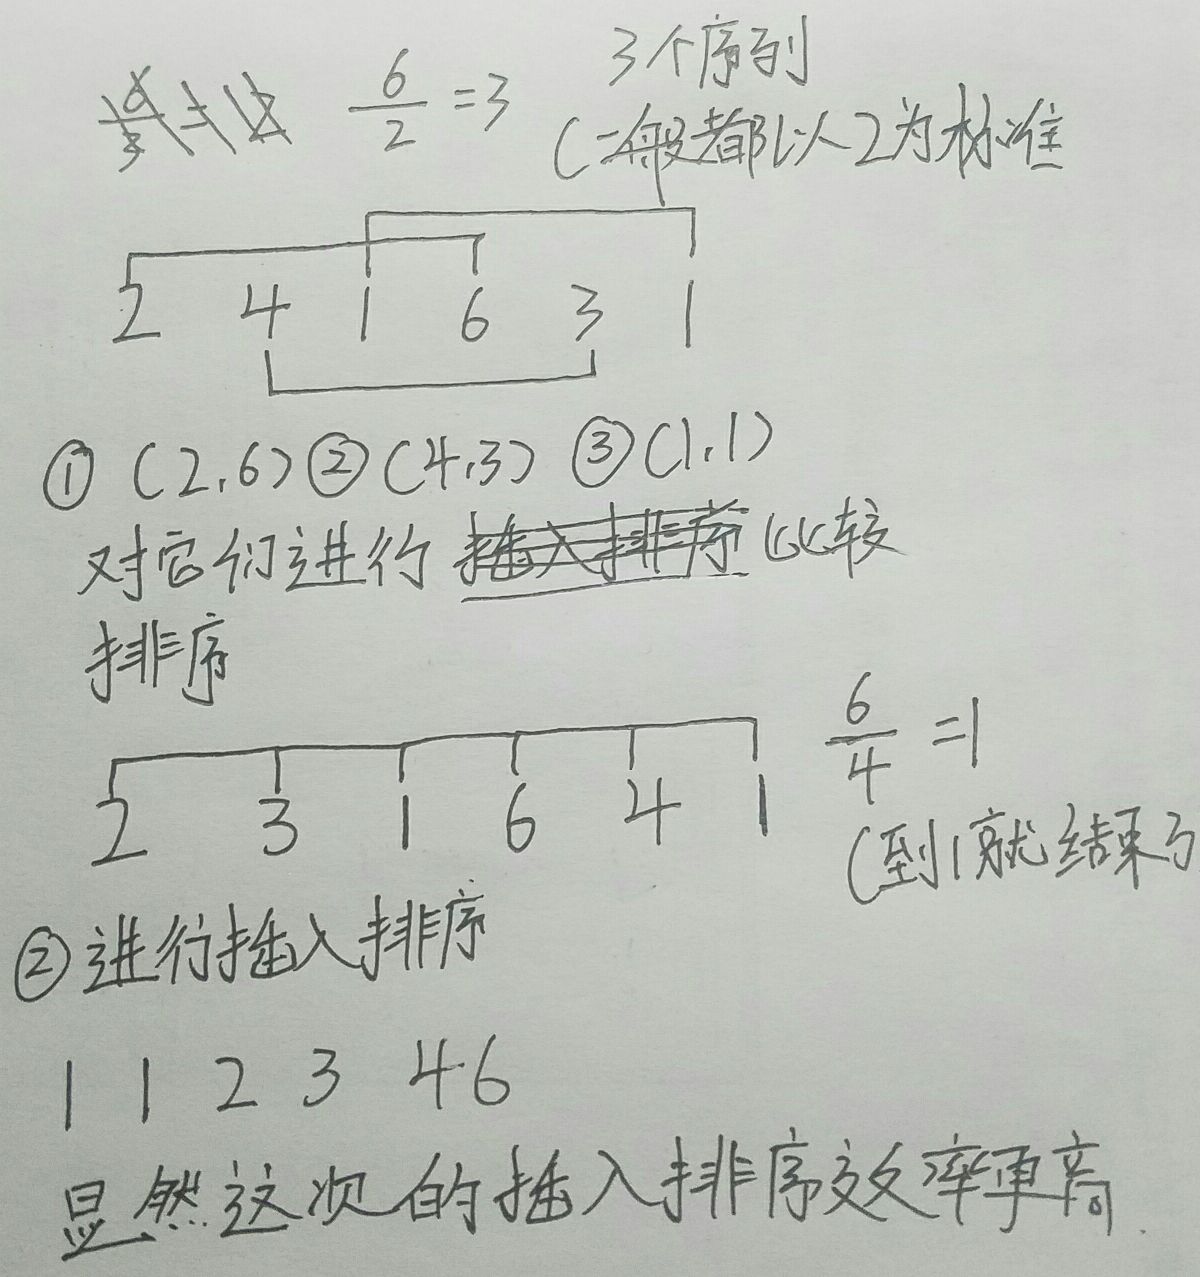 6/2 =3 3个序列
(一般都以2为标准
2 4 1 6 3 1
① (2,6) ② (4,3) ③ (1,1)
对它们进行 插入排序 比较
排序
6/4 =1
2 3 1 6 4 1
(到1就结束了
② 进行插入排序
1 1 2 3 4 6
显然这次的插入排序效率更高